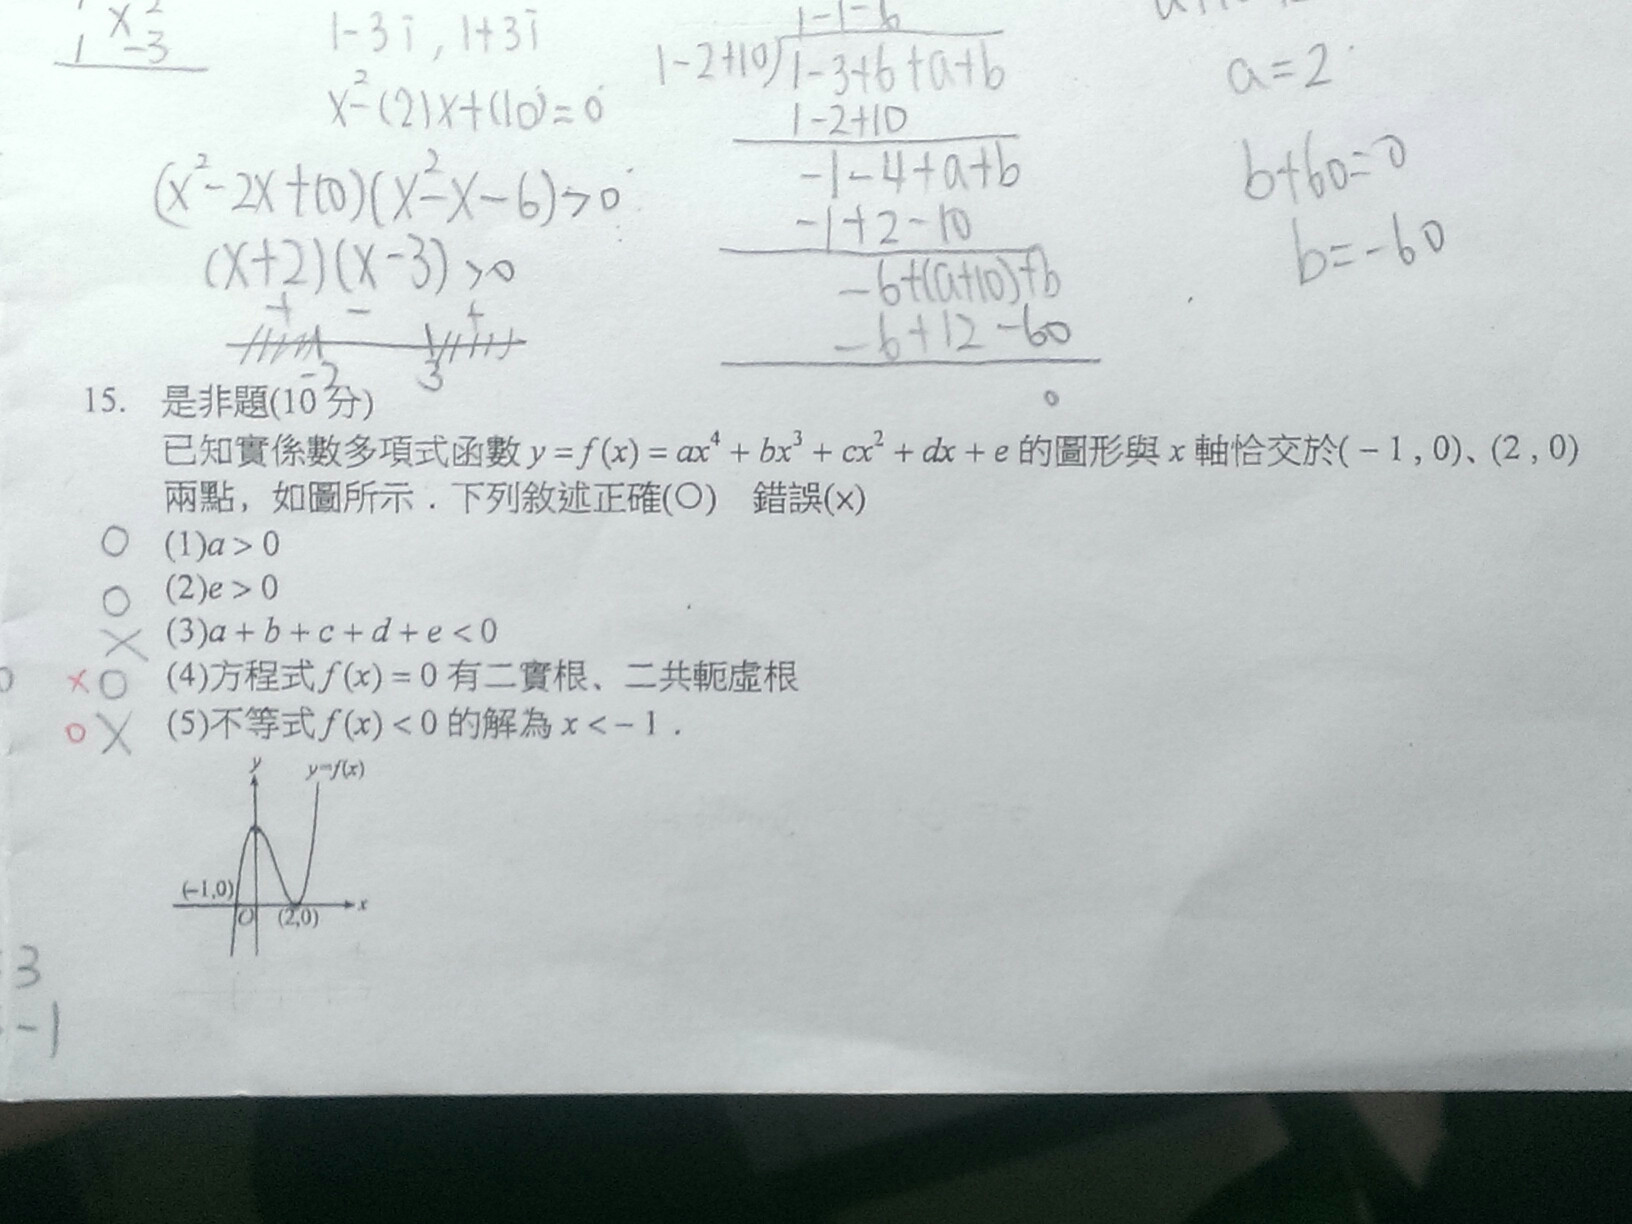 x²
1 -3
1-3i , 1+3i
x²-(2)x+(10)=0
(x²-2x+10)(x²-x-6)>0
(x+2)(x-3)>0
+ - +
-2 3
1-1-6
1-2+10)1-3+6+a+b
1-2+10
-1-4+a+b
-1+2-10
-6+(a+10)+b
-6+12-60
0
a=2
b+60=0
b=-60
15. 是非題(10分)
已知實係數多項式函數 y = f(x) = ax⁴ + bx³ + cx² + dx + e 的圖形與 x 軸恰交於( − 1 , 0)、(2 , 0)
兩點，如圖所示．下列敘述正確(○) 錯誤(x)
○ (1)a > 0
○ (2)e > 0
× (3)a + b + c + d + e < 0
× ○ (4)方程式 f(x) = 0 有二實根、二共軛虛根
○ × (5)不等式 f(x) < 0 的解為 x < − 1．
y y=f(x)
(-1,0) O (2,0) x
3
-1